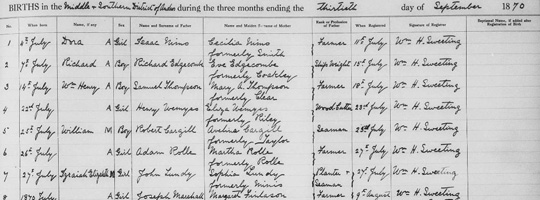 BIRTHS in the Middle & Southern District of Andros during the three months ending the thirtieth day of September 1870
No. When Born Name, if any Sex Name and Surname of Father Name and Maiden Surname of Mother Rank or Profession of Father When Registered Signature of Registrar Baptismal Name, if added after Registration of Birth
1 4th July Dora A Girl Isaac Mims Cecilia Mims Farmer 11th July Wm H. Sweeting
formerly Smith
2 7th July Richard A Boy Richard Edgecombe Eve Edgecombe Ship Wright 15th July Wm H. Sweeting
formerly Coakley
3 14th July Wm Henry A Boy Samuel Thompson Mary A. Thompson Farmer 18th July Wm H. Sweeting
formerly Clear
4 22d July A Girl Henry Wemyss Eliza Wemyss Wood Cutter 23d July Wm H. Sweeting
formerly Riley
5 20th July William A Boy Robert Cargill Cargill Seaman 23d July Wm H. Sweeting
formerly Taylor
6 26th July A Girl Adam Rolle Martha Rolle Farmer 27th July Wm H. Sweeting
formerly Rolle
7 27th July Elizabeth A Girl John Lundy Sophia Lundy Planter & 27th July Wm H. Sweeting
formerly Minis Seaman
8 1870 July A Girl Joseph Marshall Margaret Finlason Farmer 9th August Wm H. Sweeting